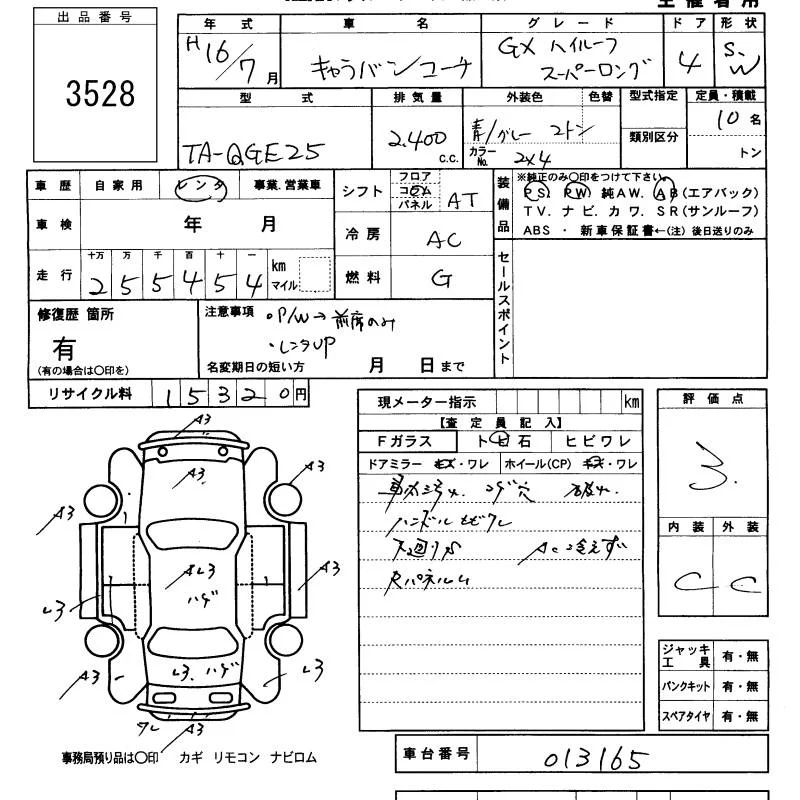 出品番号
3528
年式 車名 グレード ドア 形状
H16/7月 キャラバンコーチ GX ハイルーフ スーパーロング 4 S.W
型式 排気量 外装色 色替 型式指定 定員・積載
TA-QGE25 2.400 c.c. 青/グレー 2トン 類別区分 10名
カラーNo. 2X4 トン
車歴 自家用 レンタ 事業.営業車
シフト フロア コラム パネル AT
装備品 ※純正のみ〇印をつけて下さい。
PS. PW. 純AW. AB(エアバック)
TV. ナビ. カワ. SR(サンルーフ)
ABS ・ 新車保証書←(注) 後日送りのみ
車検 年 月
冷房 AC
走行 十万 万 千 百 十 一 km マイル
255454
燃料 G
セールスポイント
修復歴 箇所
有
(有の場合は〇印を)
注意事項 ・P/W→前席のみ
・レンタUP
名変期日の短い方 月 日まで
リサイクル料 15320円
現メーター指示 km
【査定員記入】
Fガラス トビ石 ヒビワレ
ドアミラー キズ・ワレ ホイール(CP) キズ・ワレ
コゲ穴
ハンドル
下廻りS ACンエず
評価点
3.
内装 外装
C C
ジャッキ工具 有・無
パンクキット 有・無
スペアタイヤ 有・無
A3
A3
A3
A3
A3
AL3
ハゲ
L3
L3. ハゲ
L3
A3
ワレ
A3
事務局預り品は〇印 カギ リモコン ナビロム
車台番号 013165